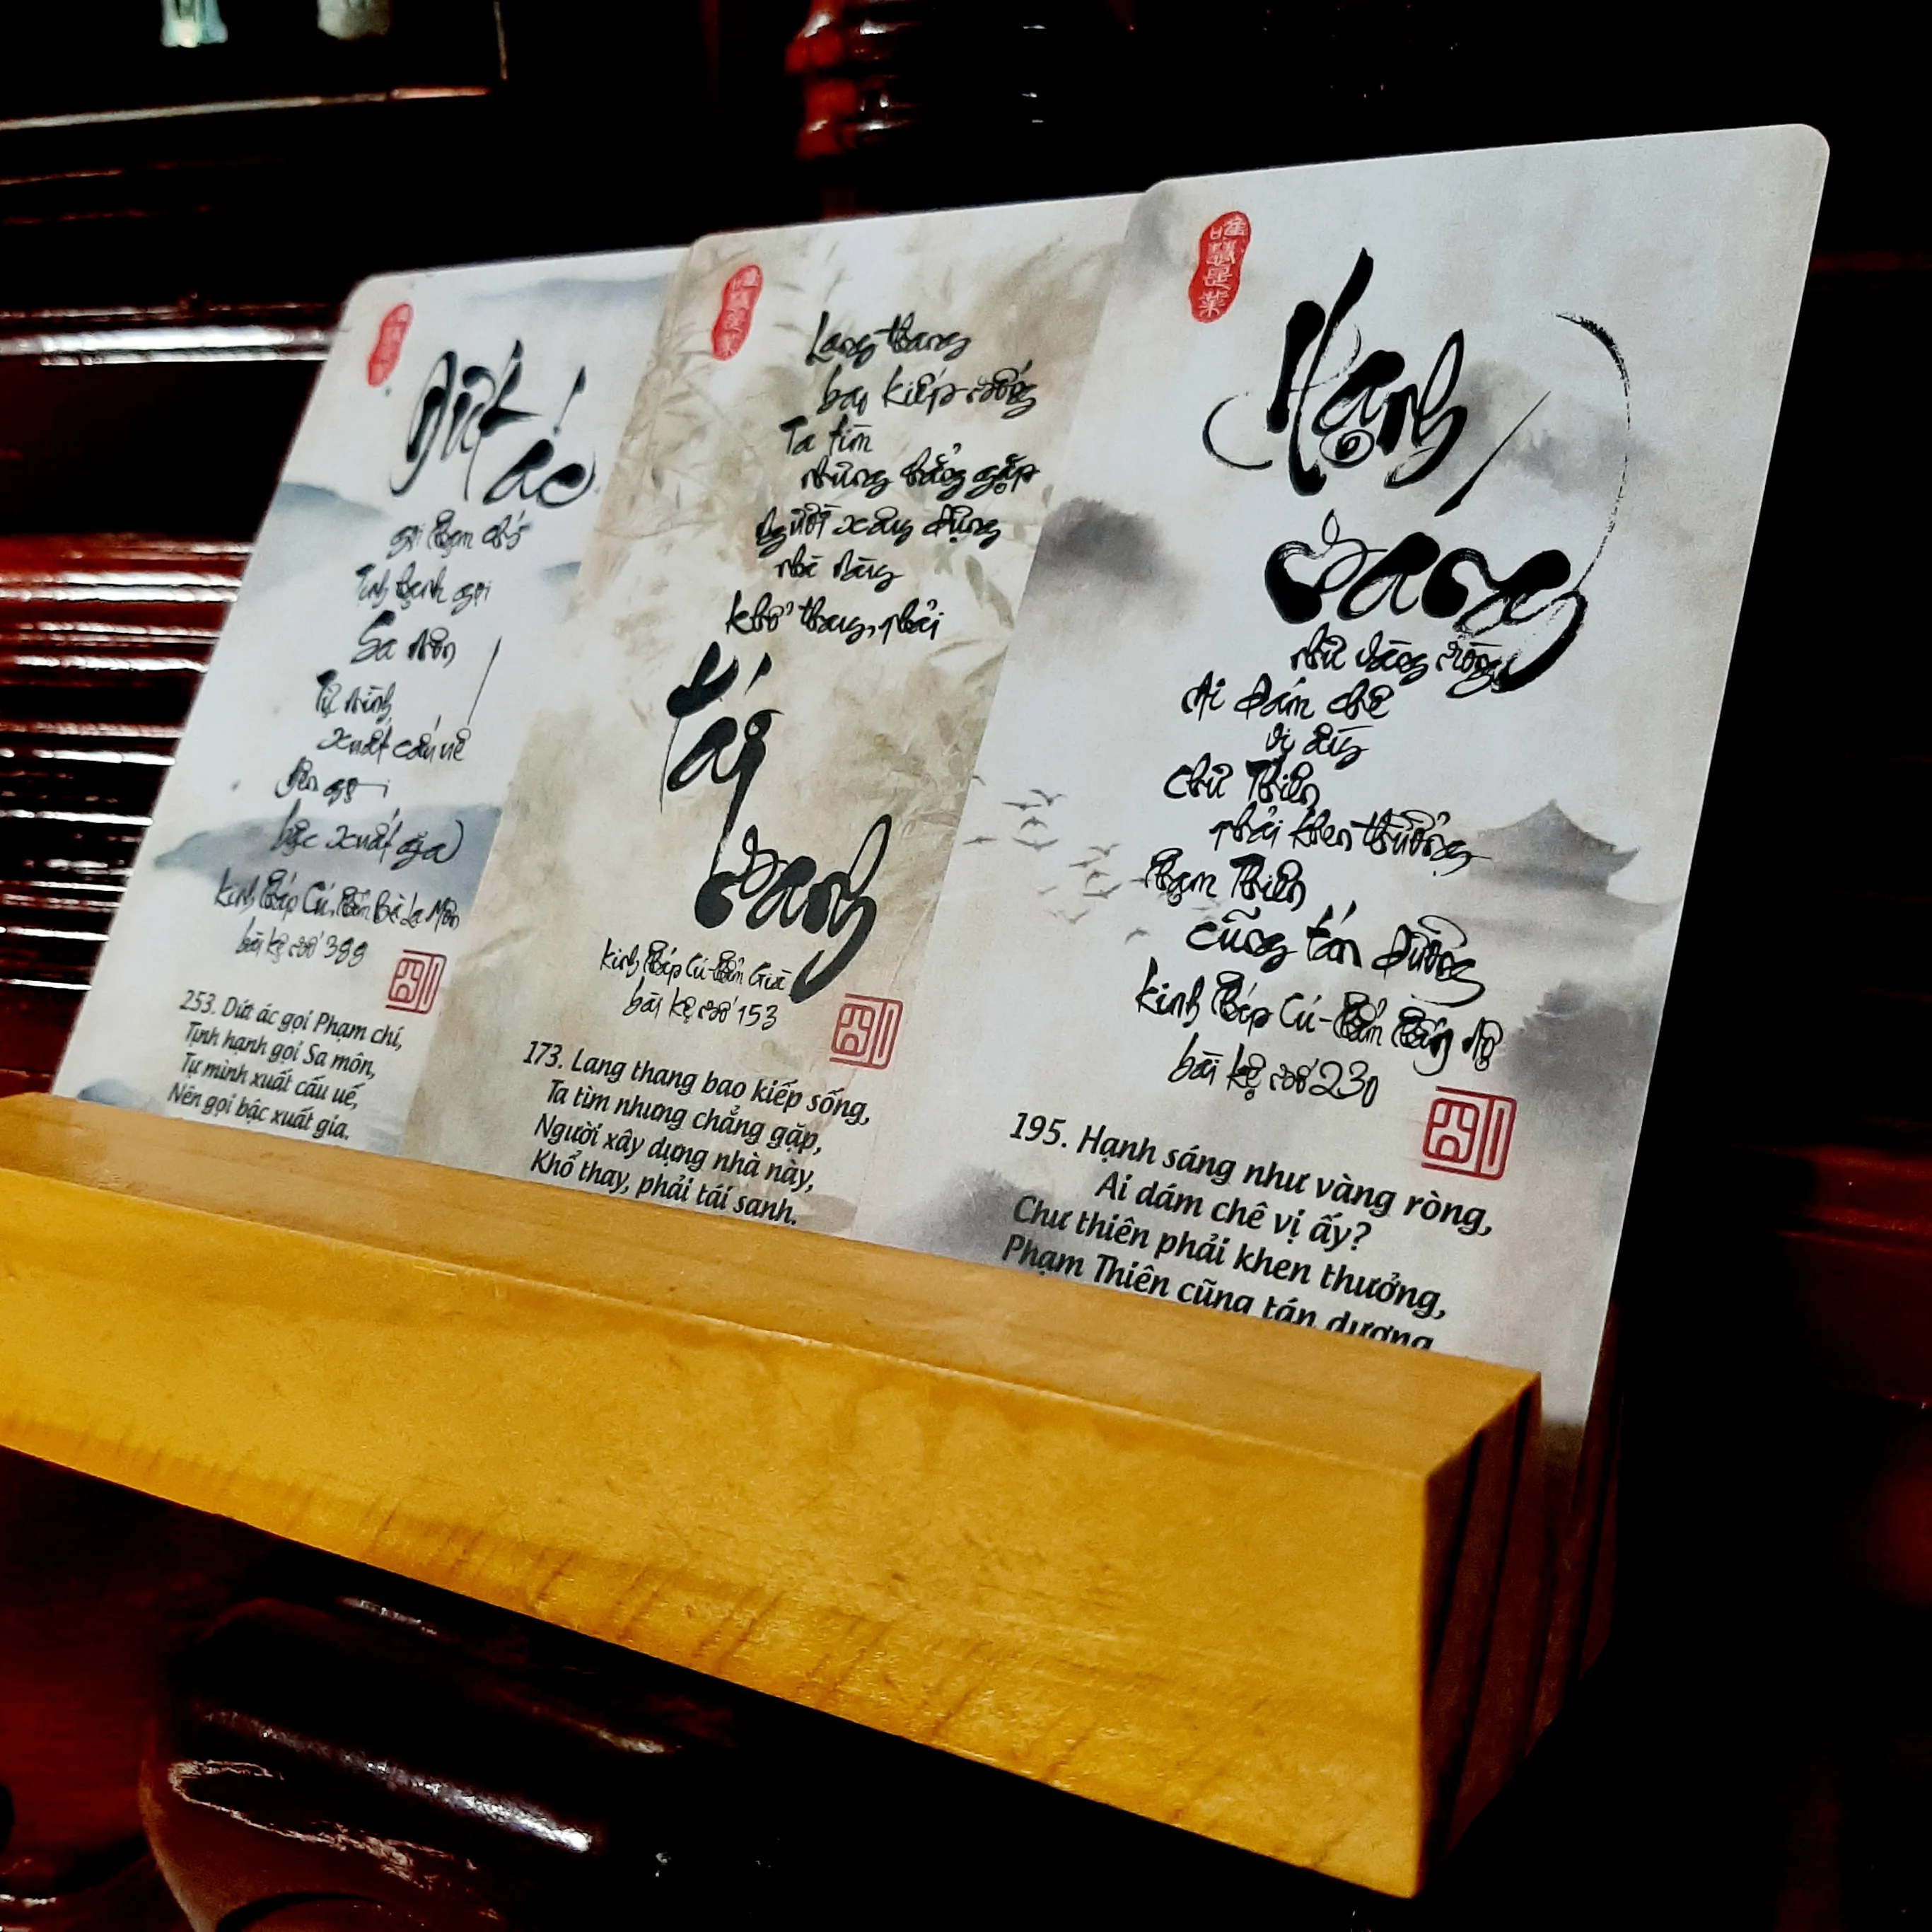 Dứt ác
gọi Phạm chí
Tịnh hạnh gọi
Sa môn
Tự mình
xuất cấu uế
Nên gọi
bậc xuất gia
Kinh Pháp Cú, Phẩm Bà La Môn
bài kệ số 388
253. Dứt ác gọi Phạm chí,
Tịnh hạnh gọi Sa môn,
Tự mình xuất cấu uế,
Nên gọi bậc xuất gia.
Lang thang
bao kiếp sống
Ta tìm
nhưng chẳng gặp
Người xây dựng
nhà này
Khổ thay, phải
tái
sanh
Kinh Pháp Cú - Phẩm Già
bài kệ số 153
173. Lang thang bao kiếp sống,
Ta tìm nhưng chẳng gặp,
Người xây dựng nhà này,
Khổ thay, phải tái sanh.
Hạnh
sáng
như vàng ròng
Ai dám chê
vị ấy
Chư Thiên
phải khen thưởng
Phạm Thiên
cũng tán dương
Kinh Pháp Cú - Phẩm Phẫn Nộ
bài kệ số 230
195. Hạnh sáng như vàng ròng,
Ai dám chê vị ấy?
Chư thiên phải khen thưởng,
Phạm Thiên cũng tán dương